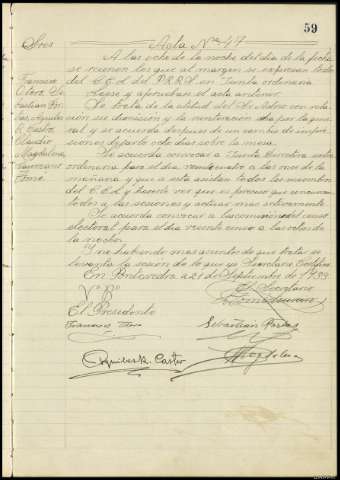 59
Sres Acta Nº 47
A las ocho de la noche del día de la fecha
se reunen los que al margen se expresan todos
Francisco del C.E.L. del P.R.R.S. en Junta ordinaria.
Otero Se- Leese y aprueban el acta anterior.
bastian Pon- Se trata de la actitud del Sr. con rela-
tas Aquiles ción su dimisión y la votación por la gene-
R. Castro ral y se acuerda después de un cambio de impre-
Claudio siones dejarlo ocho días sobre la mesa.
Magdalena Se acuerda convocar a Junta Directiva extra-
Laureano ordinaria para el día veinticuatro a las once de la
Tomé mañana y que a esta asistan todos los miembros
del C.E.L. y hacerle ver que es preciso que concurran
todos a las sesiones y actuar mas activamente.
Se acuerda convocar a la comisión del censo
electoral para el día veinte cinco a las ocho de
la noche.
Y no habiendo mas asuntos de que tratar se
levanta la sesión de lo que yo Secretario Certifico.
En Pontevedra a 21 de Septiembre de 1933
El Secretario
Vº Bº L. Tomé Laureano
El Presidente
Francisco Otero Sebastián Pontas
Aquiles R. Castro Magdalena